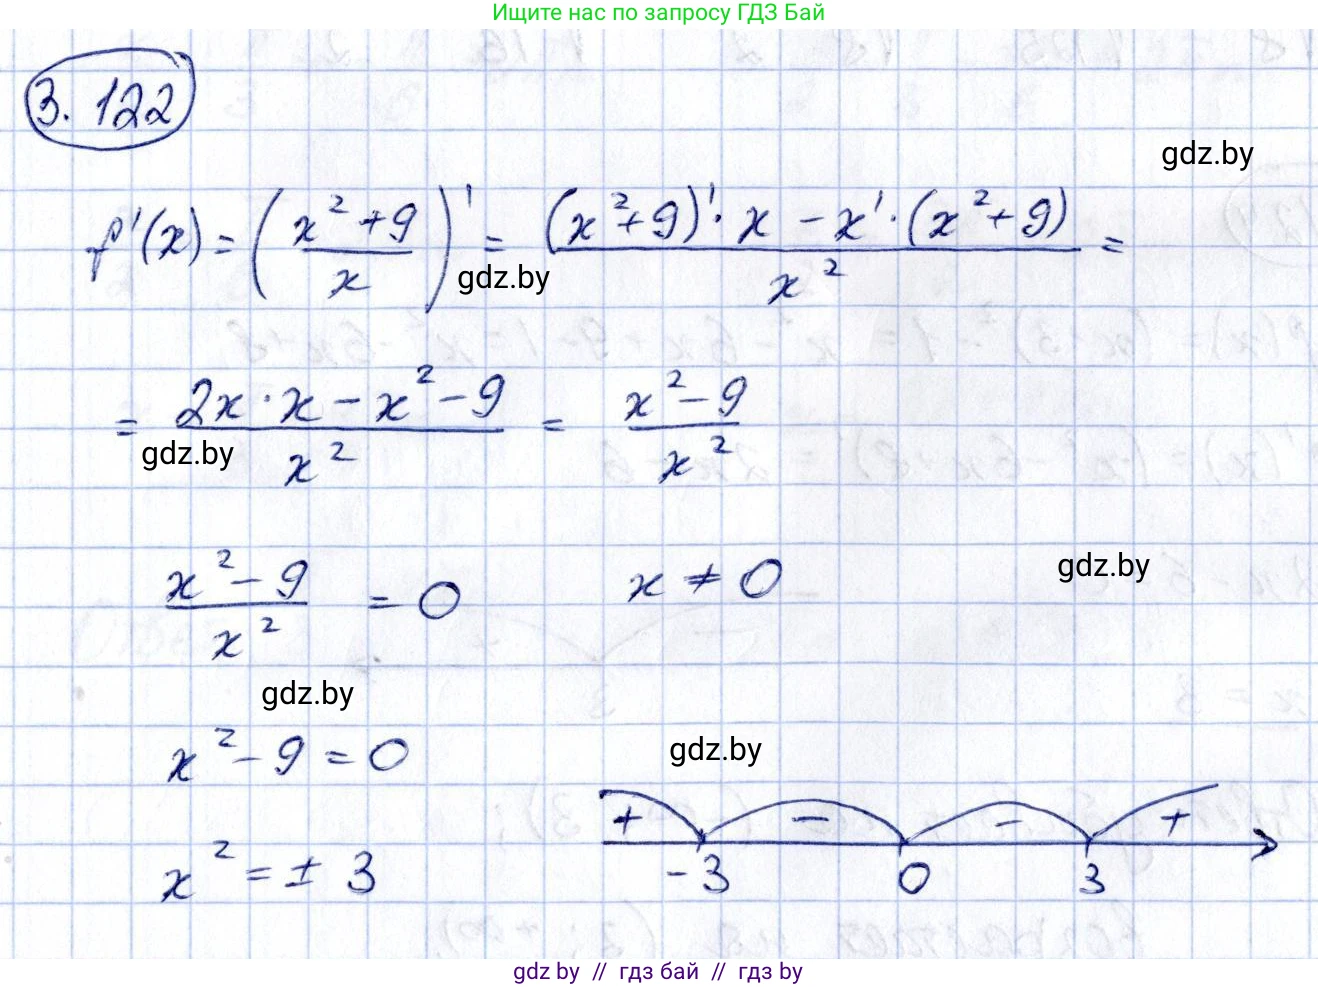 Ищите нас по запросу ГДЗ Бай
3. 122
gdz.by
f'(x) = ( (x² + 9) / x )' = ( (x² + 9)' · x − x' · (x² + 9) ) / x² =
gdz.by
= (2x · x − x² − 9) / x² = (x² − 9) / x²
gdz.by
(x² − 9) / x² = 0    x ≠ 0
gdz.by
gdz.by
x² − 9 = 0
gdz.by
x² = ± 3
+ − − +
-3 0 3
gdz by // гдз бай // gdz by